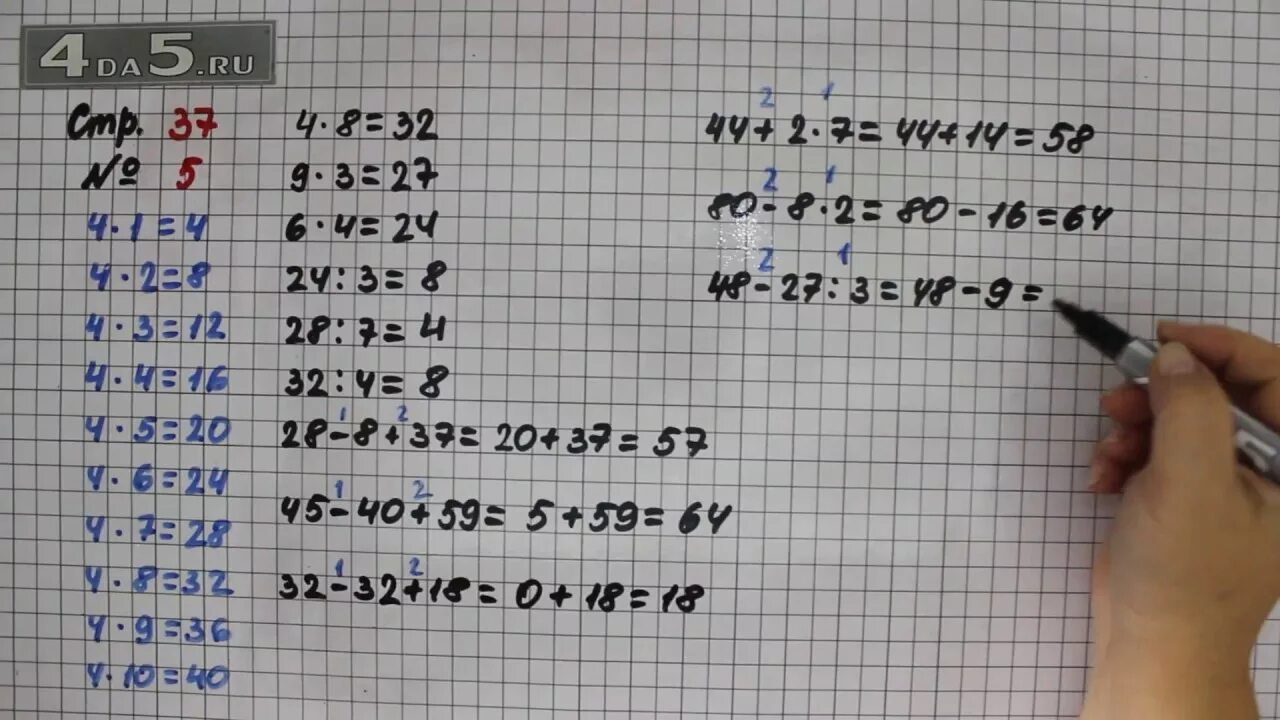 4DA5.RU
Стр. 37
№ 5
4·1=4
4·2=8
4·3=12
4·4=16
4·5=20
4·6=24
4·7=28
4·8=32
4·9=36
4·10=40
4·8=32
9·3=27
6·4=24
24:3=8
28:7=4
32:4=8
1 2
28-8+37=20+37=57
1 2
45-40+59=5+59=64
1 2
32-32+18=0+18=18
2 1
44+2·7=44+14=58
2 1
80-8·2=80-16=64
2 1
48-27:3=48-9=